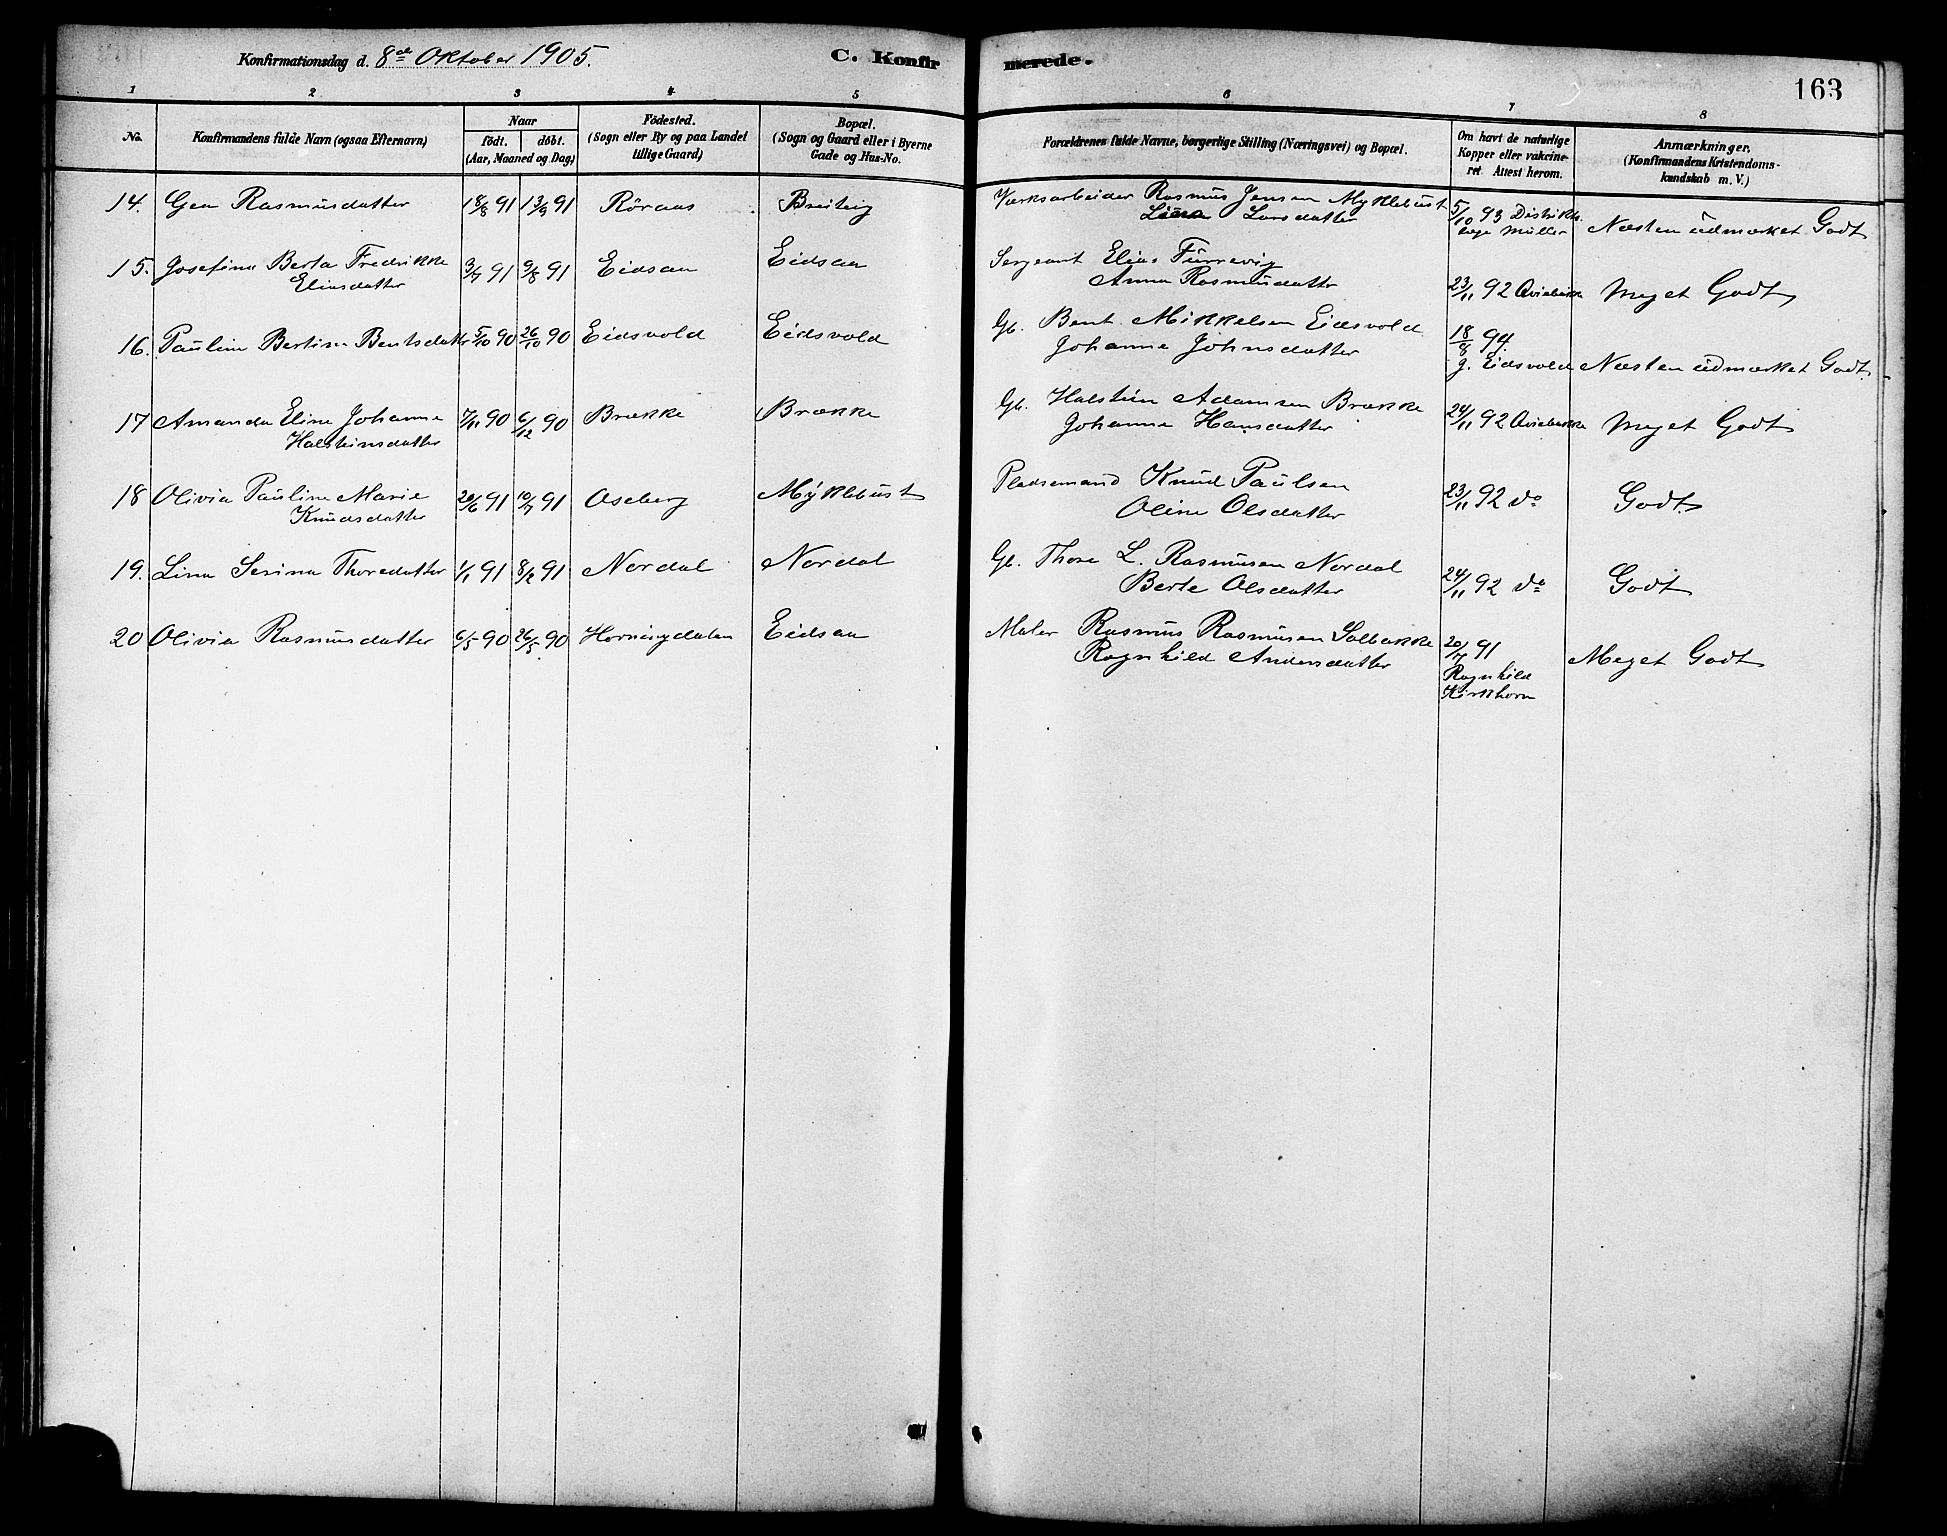 Konfirmationsdag d. 8de Oktober 1905.
C. Konfirmerede.
163
1 2 3 4 5 6 7 8
No.
Konfirmandens fulde Navn (ogsaa Efternavn)
Naar
födt. döbt.
(Aar, Maaned og Dag)
Födested.
(Sogn eller By og paa Landet
tillige Gaard)
Bopæl.
(Sogn og Gaard eller i Byerne
Gade og Hus-No.
Forældrenes fulde Navne, borgerlige Stilling (Næringsvei) og Bopæl.
Om havt de naturlige
Kopper eller vakcine-
ret. Attest herom.
Anmærkninger.
(Konfirmandens Kristendoms-
kundskab m. V.)
14. Gea Rasmusdatter 18/8 91 13/9 91 Röraas Breiteig Værksarbeider Rasmus Jensen Myklebust 5/10 93 Distrikts-
Larsdatter læge Müller Næsten udmærket Godt
15. Josefine Berta Fredrikke 3/7 91 9/8 91 Eidsaa Eidsaa Sergeant Elias Furrevig
Eliasdatter Anna Rasmusdatter 23/11 92 Meget Godt
16. Pauline Bertine Bentsdatter 5/10 90 26/10 90 Eidsvold Eidsvold Gb. Bent Mikkelsen Eidsvold 18/8 94.
Johanne Johnsdatter J. Eidsvold Næsten udmærket Godt
17 Amanda Eline Johanne 7/11 90 6/12 90 Brække Brække Gb. Halstein Adamsen Brække 24/11 92
Halsteinsdatter Johanne Hansdatter Meget Godt
18 Olivia Pauline Marie 20/6 91 10/7 91 Aseberg Myklebust Pladsemand Knud Paulsen
Knudsdatter Oline Olsdatter 23/11 92 do Godt
19. Lina Serina Thoredatter 1/1 91 8/2 91 Nordal Nordal Gb. Thore L. Rasmusen Nordal
Berte Olsdatter 24/11 92 do Godt
20 Olivia Rasmusdatter 6/5 90 26/5 90 Horningdalen Eidsaa Maler Rasmus Rasmusen Solbakke 20/7 91
Ragnhild Andersdatter Meget Godt
Ragnhild
Kirkhorn